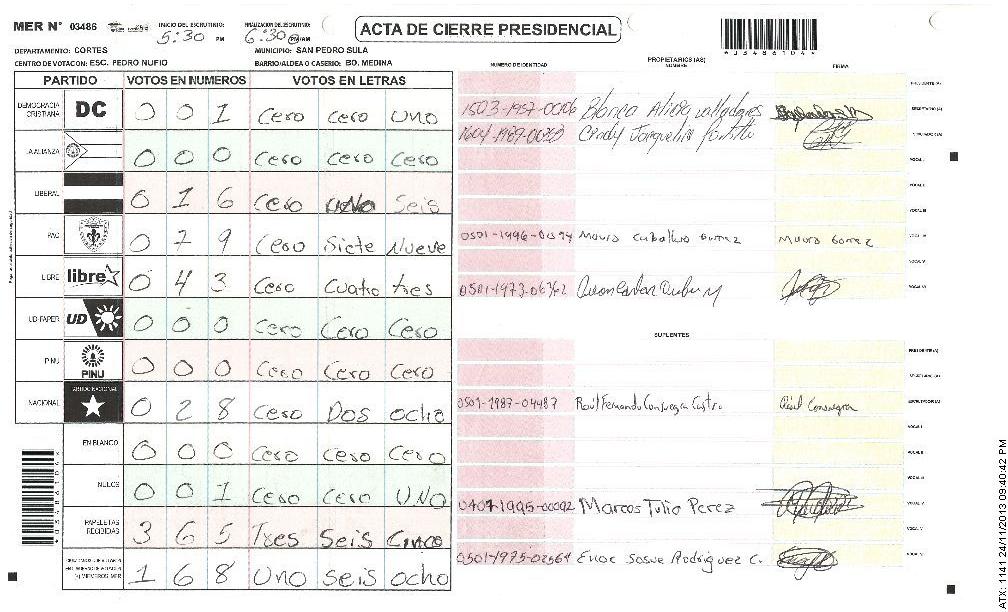 MER N° 03486
INICIO DEL ESCRUTINIO: 5:30 PM
FINALIZACION DEL ESCRUTINIO: 6:30 PM/AM
ACTA DE CIERRE PRESIDENCIAL
*03486104*
DEPARTAMENTO: CORTES
MUNICIPIO: SAN PEDRO SULA
CENTRO DE VOTACION: ESC. PEDRO NUFIO
BARRIO/ALDEA O CASERIO: BO. MEDINA
PARTIDO VOTOS EN NUMEROS VOTOS EN LETRAS
DEMOCRACIA CRISTIANA DC 0 0 1 Cero cero uno
LA ALIANZA 0 0 0 Cero Cero Cero
LIBERAL 0 1 6 Cero uno Seis
PAC 0 7 9 Cero Siete Nueve
LIBRE libre 0 4 3 Cero Cuatro tres
UD-FAPER UD 0 0 0 Cero Cero Cero
PINU PINU 0 0 0 Cero Cero Cero
NACIONAL PARTIDO NACIONAL 0 2 8 Cero Dos ocho
EN BLANCO 0 0 0 Cero Cero Cero
NULOS 0 0 1 Cero Cero UNO
PAPELETAS RECIBIDAS 3 6 5 Tres Seis Cinco
1 6 8 Uno seis ocho
NUMERO DE IDENTIDAD
PROPIETARIOS (AS)
NOMBRE
FIRMA
PRESIDENTE (A)
1503-1957-00106 Blanca Alicia Valladares SECRETARIO (A)
Cindy Jaquelin Portillo
VOCAL I
VOCAL II
VOCAL III
Mauro Caballero Gomez Mauro Gomez
VOCAL V
0501-1973- VOCAL VI
SUPLENTES
PRESIDENTE (A)
SECRETARIO (A)
0501-1987-04487 Raúl Fernando Consuegra Castro Raúl Consuegra ESCRUTADOR (A)
VOCAL I
VOCAL II
VOCAL III
0407-1995-00092 Marcos Tulio Perez
VOCAL V
0501-1975-02564 Enoc Josue Rodriguez C.
ATX: 1141 24/11/2013 09:40:42 PM